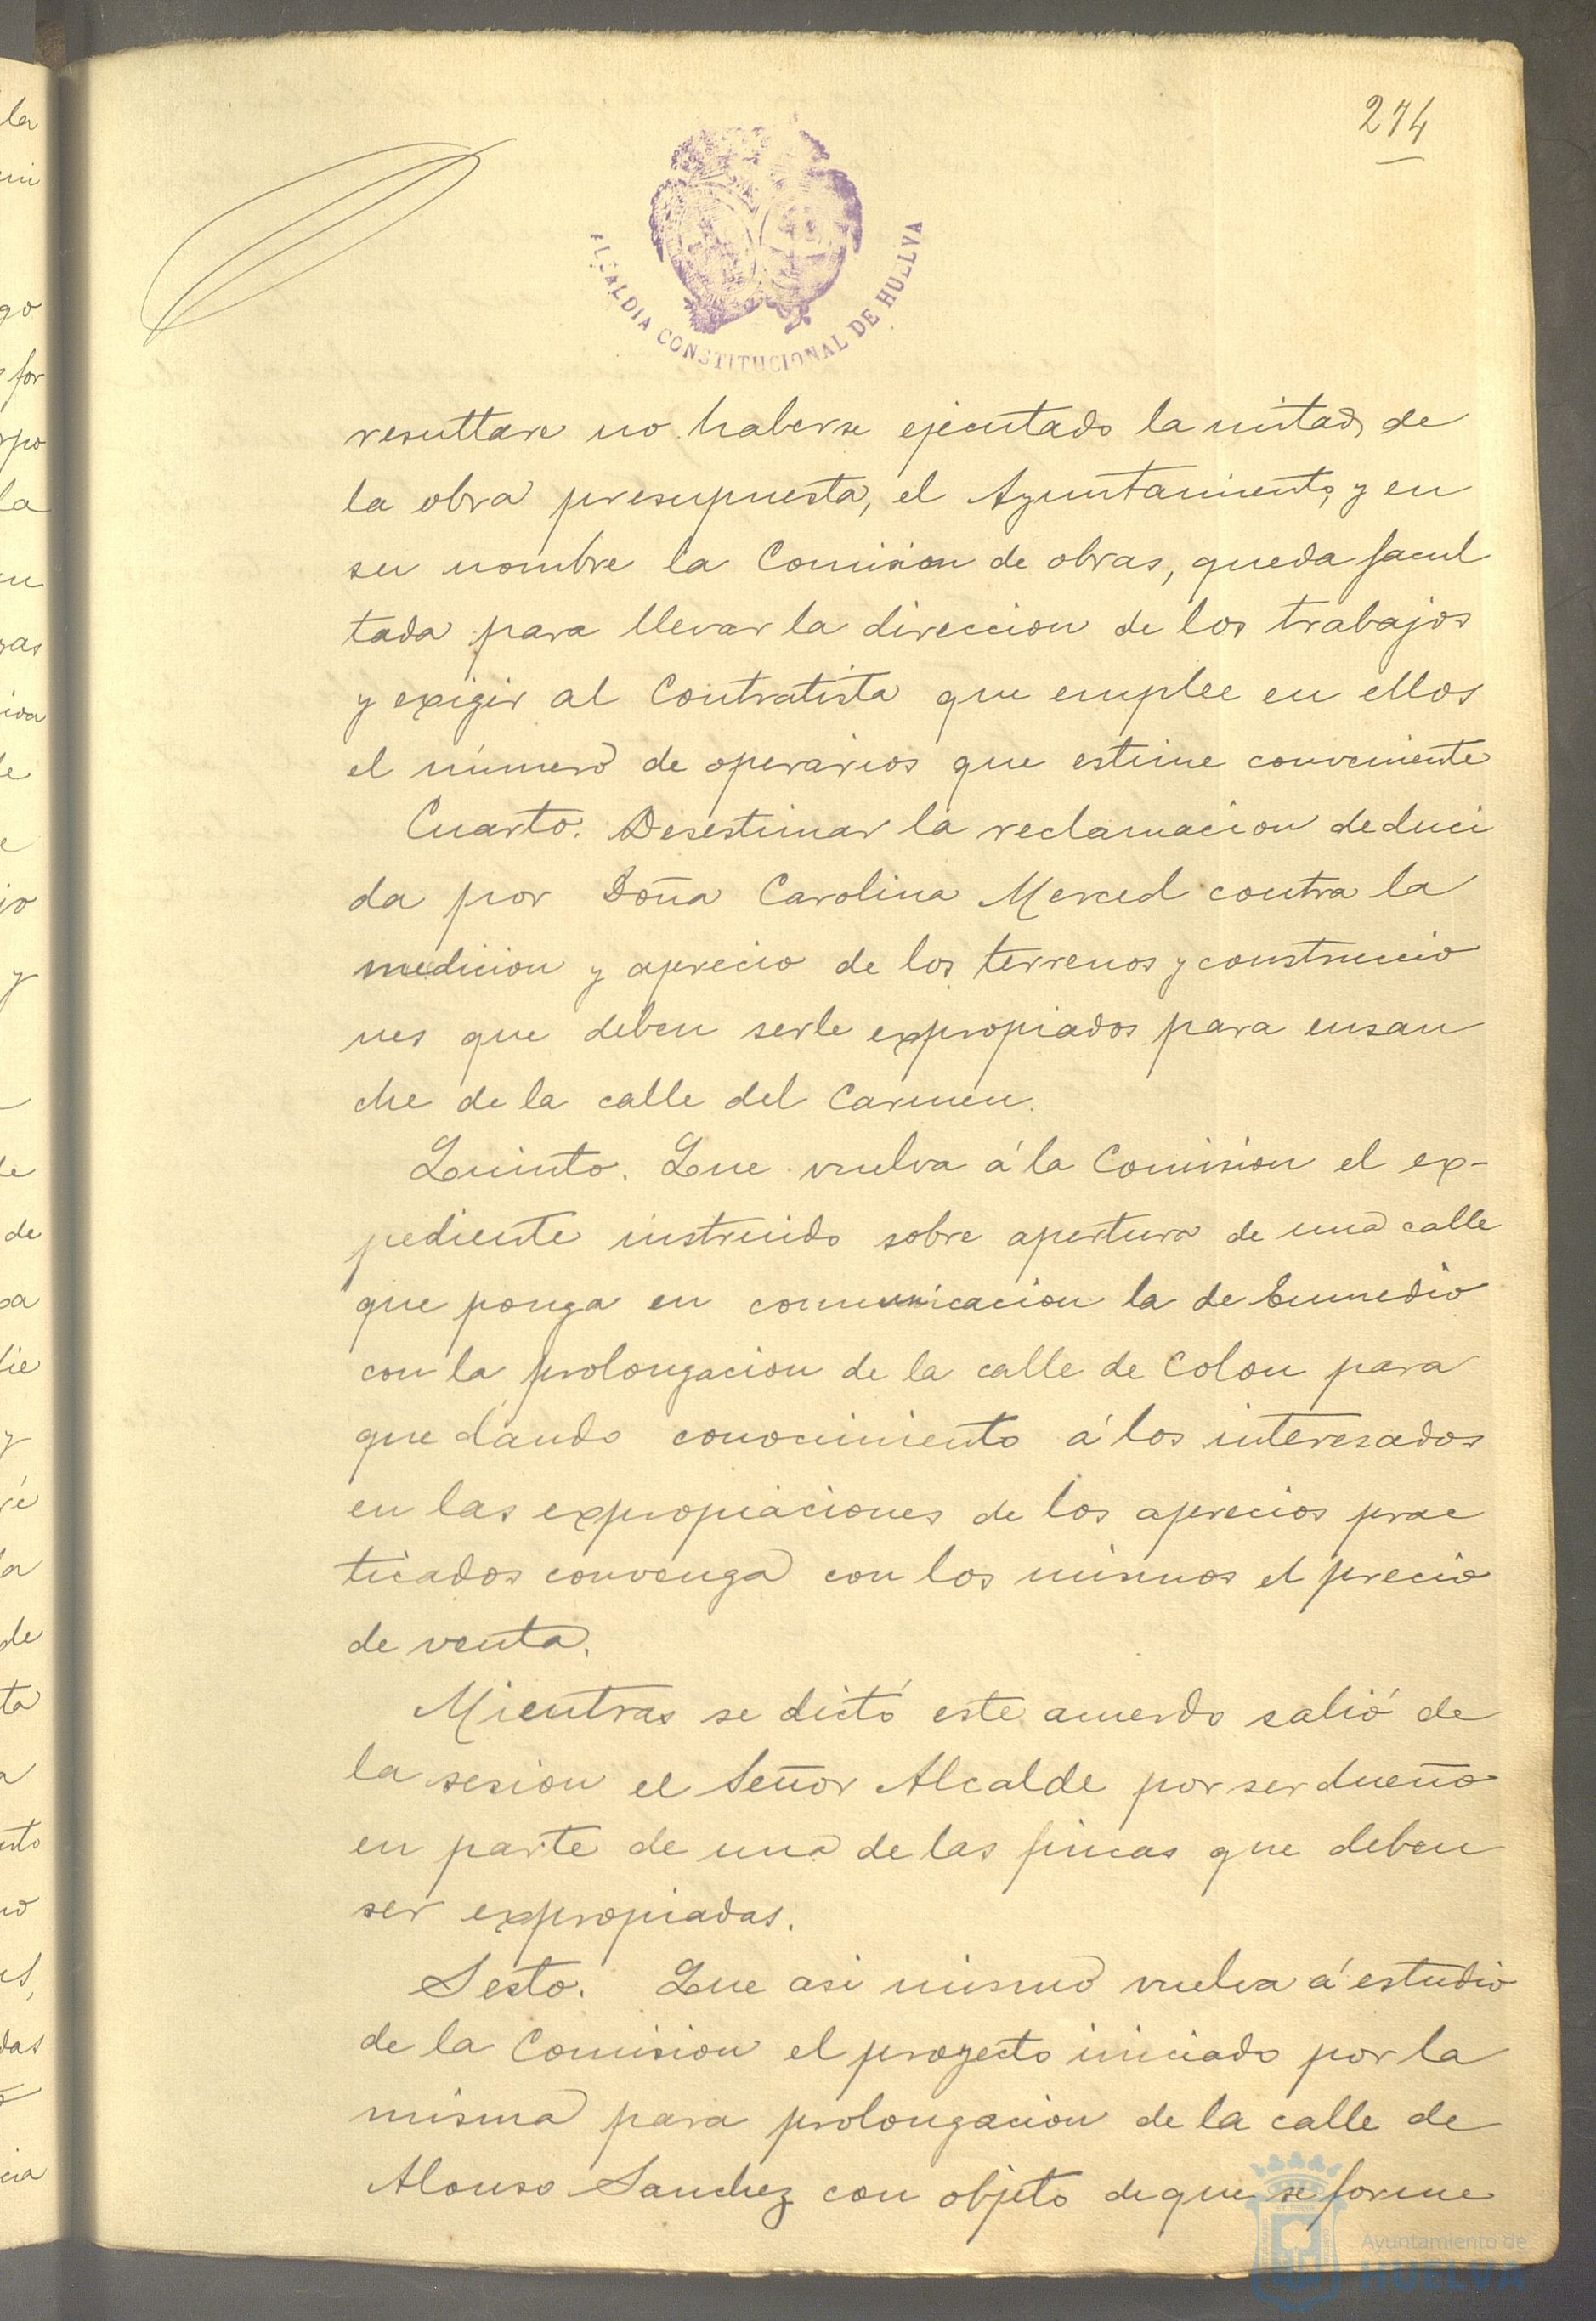 274
ALCALDIA CONSTITUCIONAL DE HUELVA
resultare no haberse ejecutado la mitad de
la obra presupuesta, el Ayuntamiento, y en
su nombre la Comision de obras, queda facul
tada para llevar la direccion de los trabajos
y exigir al Contratista que emplée en ellos
el número de operarios que estime conveniente
Cuarto. Desestimar la reclamacion deduci
da por Doña Carolina Merced contra la
medicion y aprecio de los terrenos y construccio
nes que deben serle expropiados para ensan
che de la calle del Carmen.
Quinto. Que vuelva á la Comision el ex-
pediente instruido sobre apertura de una calle
que ponga en comunicacion la de Enmedio
con la prolongacion de la calle de Colon para
que dando conocimiento á los interesados
en las expropiaciones de los aprecios prac
ticados convenga con los mismos el precio
de venta.
Mientras se dictó este acuerdo salió de
la sesion el Señor Alcalde por ser dueño
en parte de una de las fincas que deben
ser expropiadas.
Sesto. Que asi mismo vuelva á estudio
de la Comision el proyecto iniciado por la
misma para prolongacion de la calle de
Alonso Sanchez con objeto de que se forme
Ayuntamiento de
HUELVA